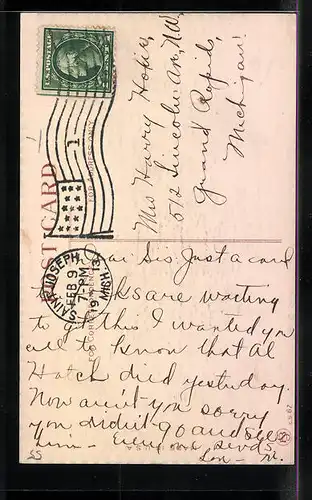 U.S. POSTAGE
1
POST CARD
FOR ADDRESS ONLY
FOR CORRESPONDENCE
SAINT JOSEPH,
MICH.
FEB 9
PM
1913
Mrs Harry
612 Lincoln Av, N.W.
Grand Rapids,
Michigan.
Dear Sis Just a card
are waiting
to get this I wanted you
all to know that Al
Hatch died yesterday.
Now ain't you sorry
you didn't go and see
him — Every one sends
Lon — N.
55